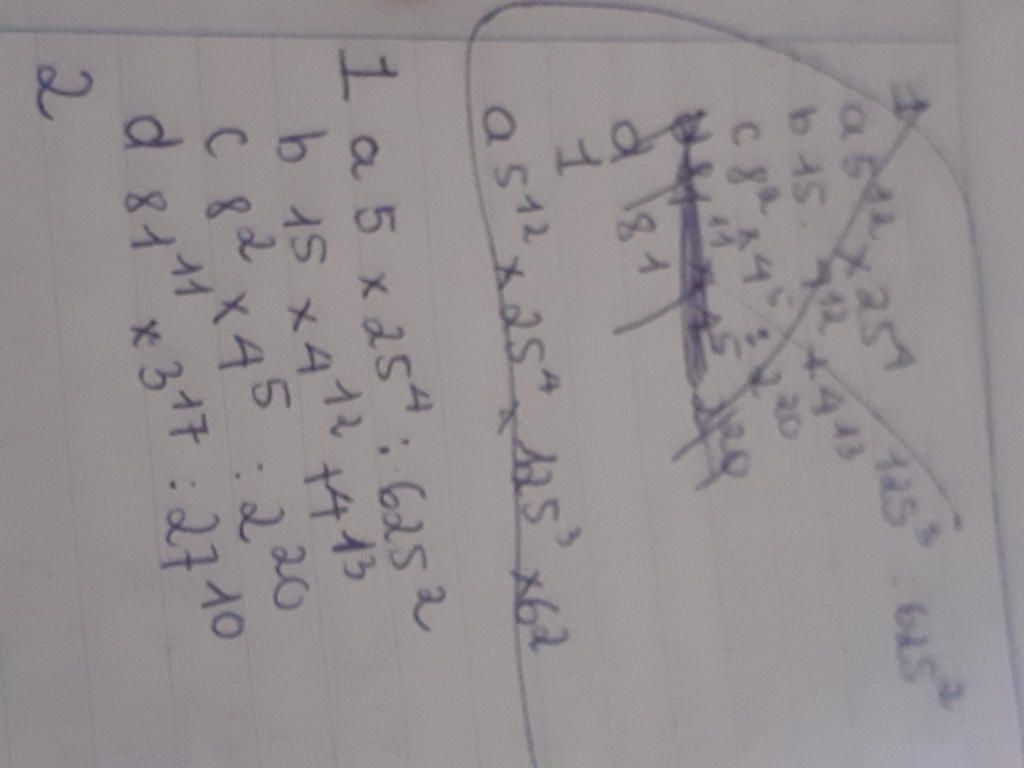 1
a 5¹² × 25⁴ 125³ : 625²
b 15. 4¹² + 4¹³
c 8² × 4⁵ : 2²⁰
d 81
1
a 5¹² × 25⁴ × 125³ × 62
1 a 5 × 25⁴ : 625²
b 15 × 4¹² + 4¹³
c 8² × 4⁵ : 2²⁰
d 81¹¹ × 3¹⁷ : 27¹⁰
2